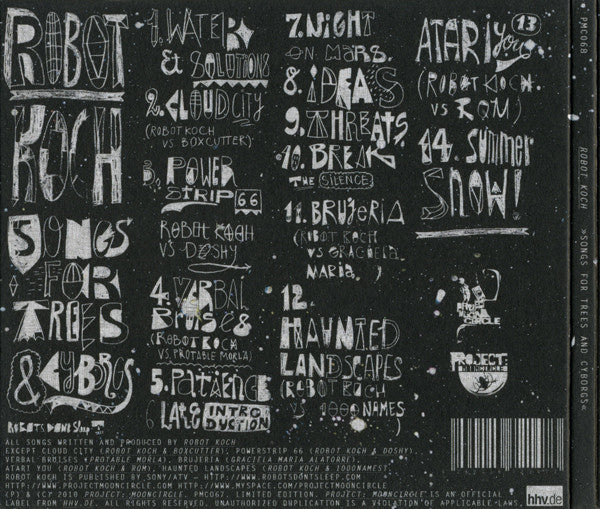 ROBOT
KOCH
SONGS
FOR
TREES
& CYBORGS
ROBOTSDONTSleep
1. WATER
& SOLUTIONS
2. CLOUD CITY
(ROBOT KOCH
VS BOXCUTTER)
3. POWER
STRIP 66
ROBOT KOCH
VS DOSHY
4. VERBAL
BRUISES
(ROBOT KOCH
VS. PROTABLE MORLA)
5. PATIENCE
6 LARG INTRO
DUCTION
7. NIGHT
ON MARS.
8. IDEAS
9. THREATS
10. BREAK
THE (SILENCE)
11. BRUJERIA
(ROBOT KOCH
VS GRACIELA
MARIA.)
12.
HAUNTED
LANDSCAPES
(ROBOT KOCH
VS 1000 NAMES)
13
ATARI you
(ROBOT KOCH.
VS RQM)
14. SUMMER
SNOW!
PROJECT:
MOONCIRCLE
ALL SONGS WRITTEN AND PRODUCED BY ROBOT KOCH
EXCEPT CLOUD CITY (ROBOT KOCH & BOXCUTTER), POWERSTRIP 66 (ROBOT KOCH & DOSHY).
VERBAL BRUISES (PROTABLE MORLA), BRUJERIA (GRACIELA MARIA ALATORRE).
ATARI YOU (ROBOT KOCH & RQM), HAUNTED LANDSCAPES (ROBOT KOCH & 1000NAMES).
ROBOT KOCH IS PUBLISHED BY SONY/ATV - HTTP://WWW.ROBOTSDONTSLEEP.COM
HTTP://WWW.PROJECTMOONCIRCLE.COM HTTP://WWW.MYSPACE.COM/PROJECTMOONCIRCLE
(P) & (C) 2010 PROJECT: MOONCIRCLE. PMC067. LIMITED EDITION. PROJECT: MOONCIRCLE IS AN OFFICIAL
LABEL FROM HHV.DE. ALL RIGHTS RESERVED. UNAUTHORIZED DUPLICATION IS A VIOLATION OF APPLICABLE LAWS.
hhv.de
PMC068 ROBOT KOCH »SONGS FOR TREES AND CYBORGS«